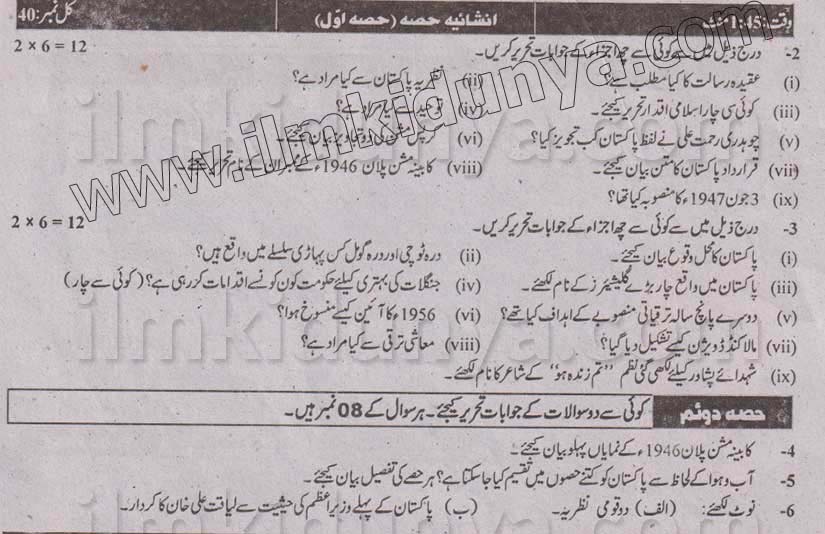 وقت: 1:45 منٹ انشائیہ حصہ (حصہ اوّل) کل نمبر: 40
2- درج ذیل میں سے کوئی سے چھ اجزاء کے جوابات تحریر کریں۔ 2 × 6 = 12
(i) عقیدہ رسالت کا کیا مطلب ہے؟ (ii) نظریہ پاکستان سے کیا مراد ہے؟
(iii) کوئی سی چار اسلامی اقدار تحریر کیجئے۔ (iv) توحید سے کیا مراد ہے؟
(v) چوہدری رحمت علی نے لفظ پاکستان کب تجویز کیا؟ (vi) کرپس مشن کی دو تجاویز بیان کیجئے۔
(vii) قرارداد پاکستان کا متن بیان کیجئے۔ (viii) کابینہ مشن پلان 1946ء کے ممبران کے نام تحریر کیجئے
(ix) 3 جون 1947ء کا منصوبہ کیا تھا؟
3- درج ذیل میں سے کوئی سے چھ اجزاء کے جوابات تحریر کریں۔ 2 × 6 = 12
(i) پاکستان کا محل وقوع بیان کیجئے۔ (ii) درہ ٹوچی اور درہ گومل کس پہاڑی سلسلے میں واقع ہیں؟
(iii) پاکستان میں واقع چار بڑے گلیشیئرز کے نام لکھئے۔ (iv) جنگلات کی بہتری کیلئے حکومت کون کونسے اقدامات کر رہی ہے؟ (کوئی سے چار)
(v) دوسرے پانچ سالہ ترقیاتی منصوبے کے اہداف کیا تھے؟ (vi) 1956ء کا آئین کیسے منسوخ ہوا؟
(vii) مالاکنڈ ڈویژن کیسے تشکیل دیا گیا؟ (viii) معاشی ترقی سے کیا مراد ہے؟
(ix) شہدائے پشاور کیلئے لکھی گئی نظم "تم زندہ ہو" کے شاعر کا نام لکھئے۔
حصہ دوئم کوئی سے دو سوالات کے جوابات تحریر کیجئے۔ ہر سوال کے 08 نمبر ہیں۔
4- کابینہ مشن پلان 1946ء کے نمایاں پہلو بیان کیجئے۔
5- آب و ہوا کے لحاظ سے پاکستان کو کتنے حصوں میں تقسیم کیا جاسکتا ہے؟ ہر حصے کی تفصیل بیان کیجئے۔
6- نوٹ لکھئے: (الف) دو قومی نظریہ۔ (ب) پاکستان کے پہلے وزیراعظم کی حیثیت سے لیاقت علی خان کا کردار۔
www.ilmkidunya.com
ilmkidunya.com
ilmkidunya.com
ilmkidunya.com